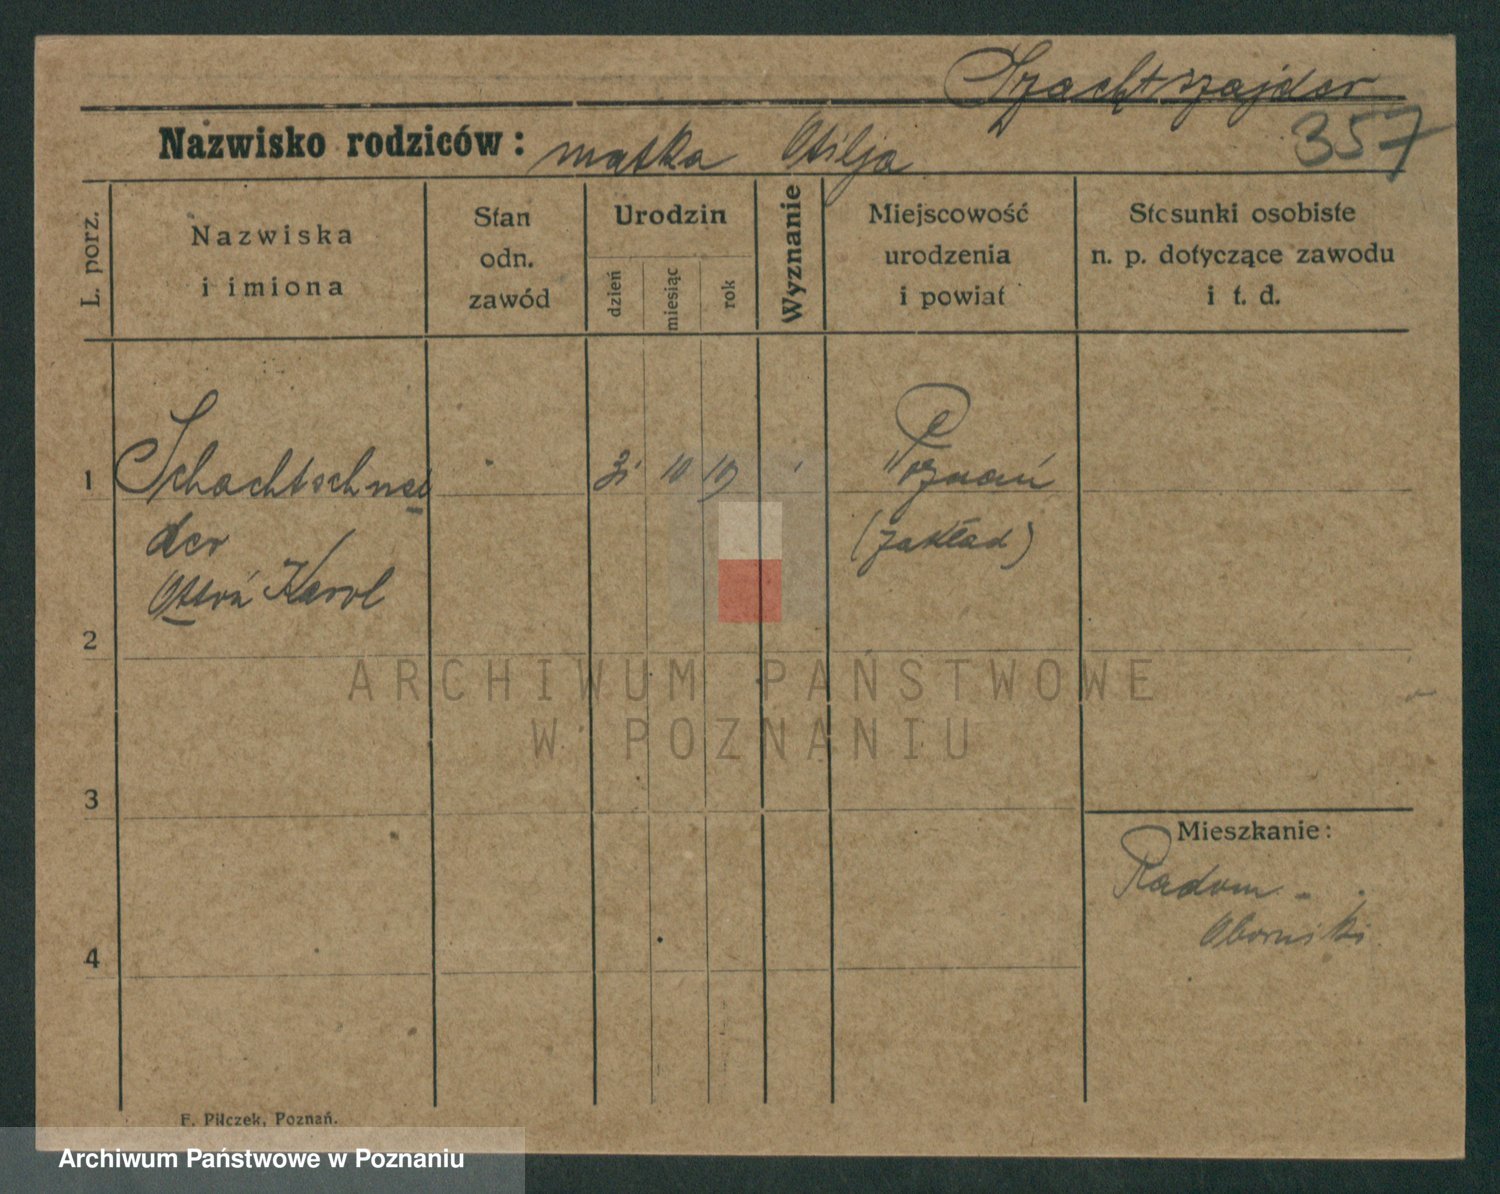 Szachtszajder
357
Nazwisko rodziców: matka Otilja
L. porz.
Nazwiska
i imiona
Stan
odn.
zawód
Urodzin
dzień
miesiąc
rok
Wyznanie
Miejscowość
urodzenia
i powiat
Stosunki osobiste
n. p. dotyczące zawodu
i t. d.
1
Schachtschnei
der
Karol
10 19
Poznań
(zakład)
2
3
4
Mieszkanie:
Radom -
Oborniki
ARCHIWUM PAŃSTWOWE
W POZNANIU
F. Pilczek, Poznań.
Archiwum Państwowe w Poznaniu